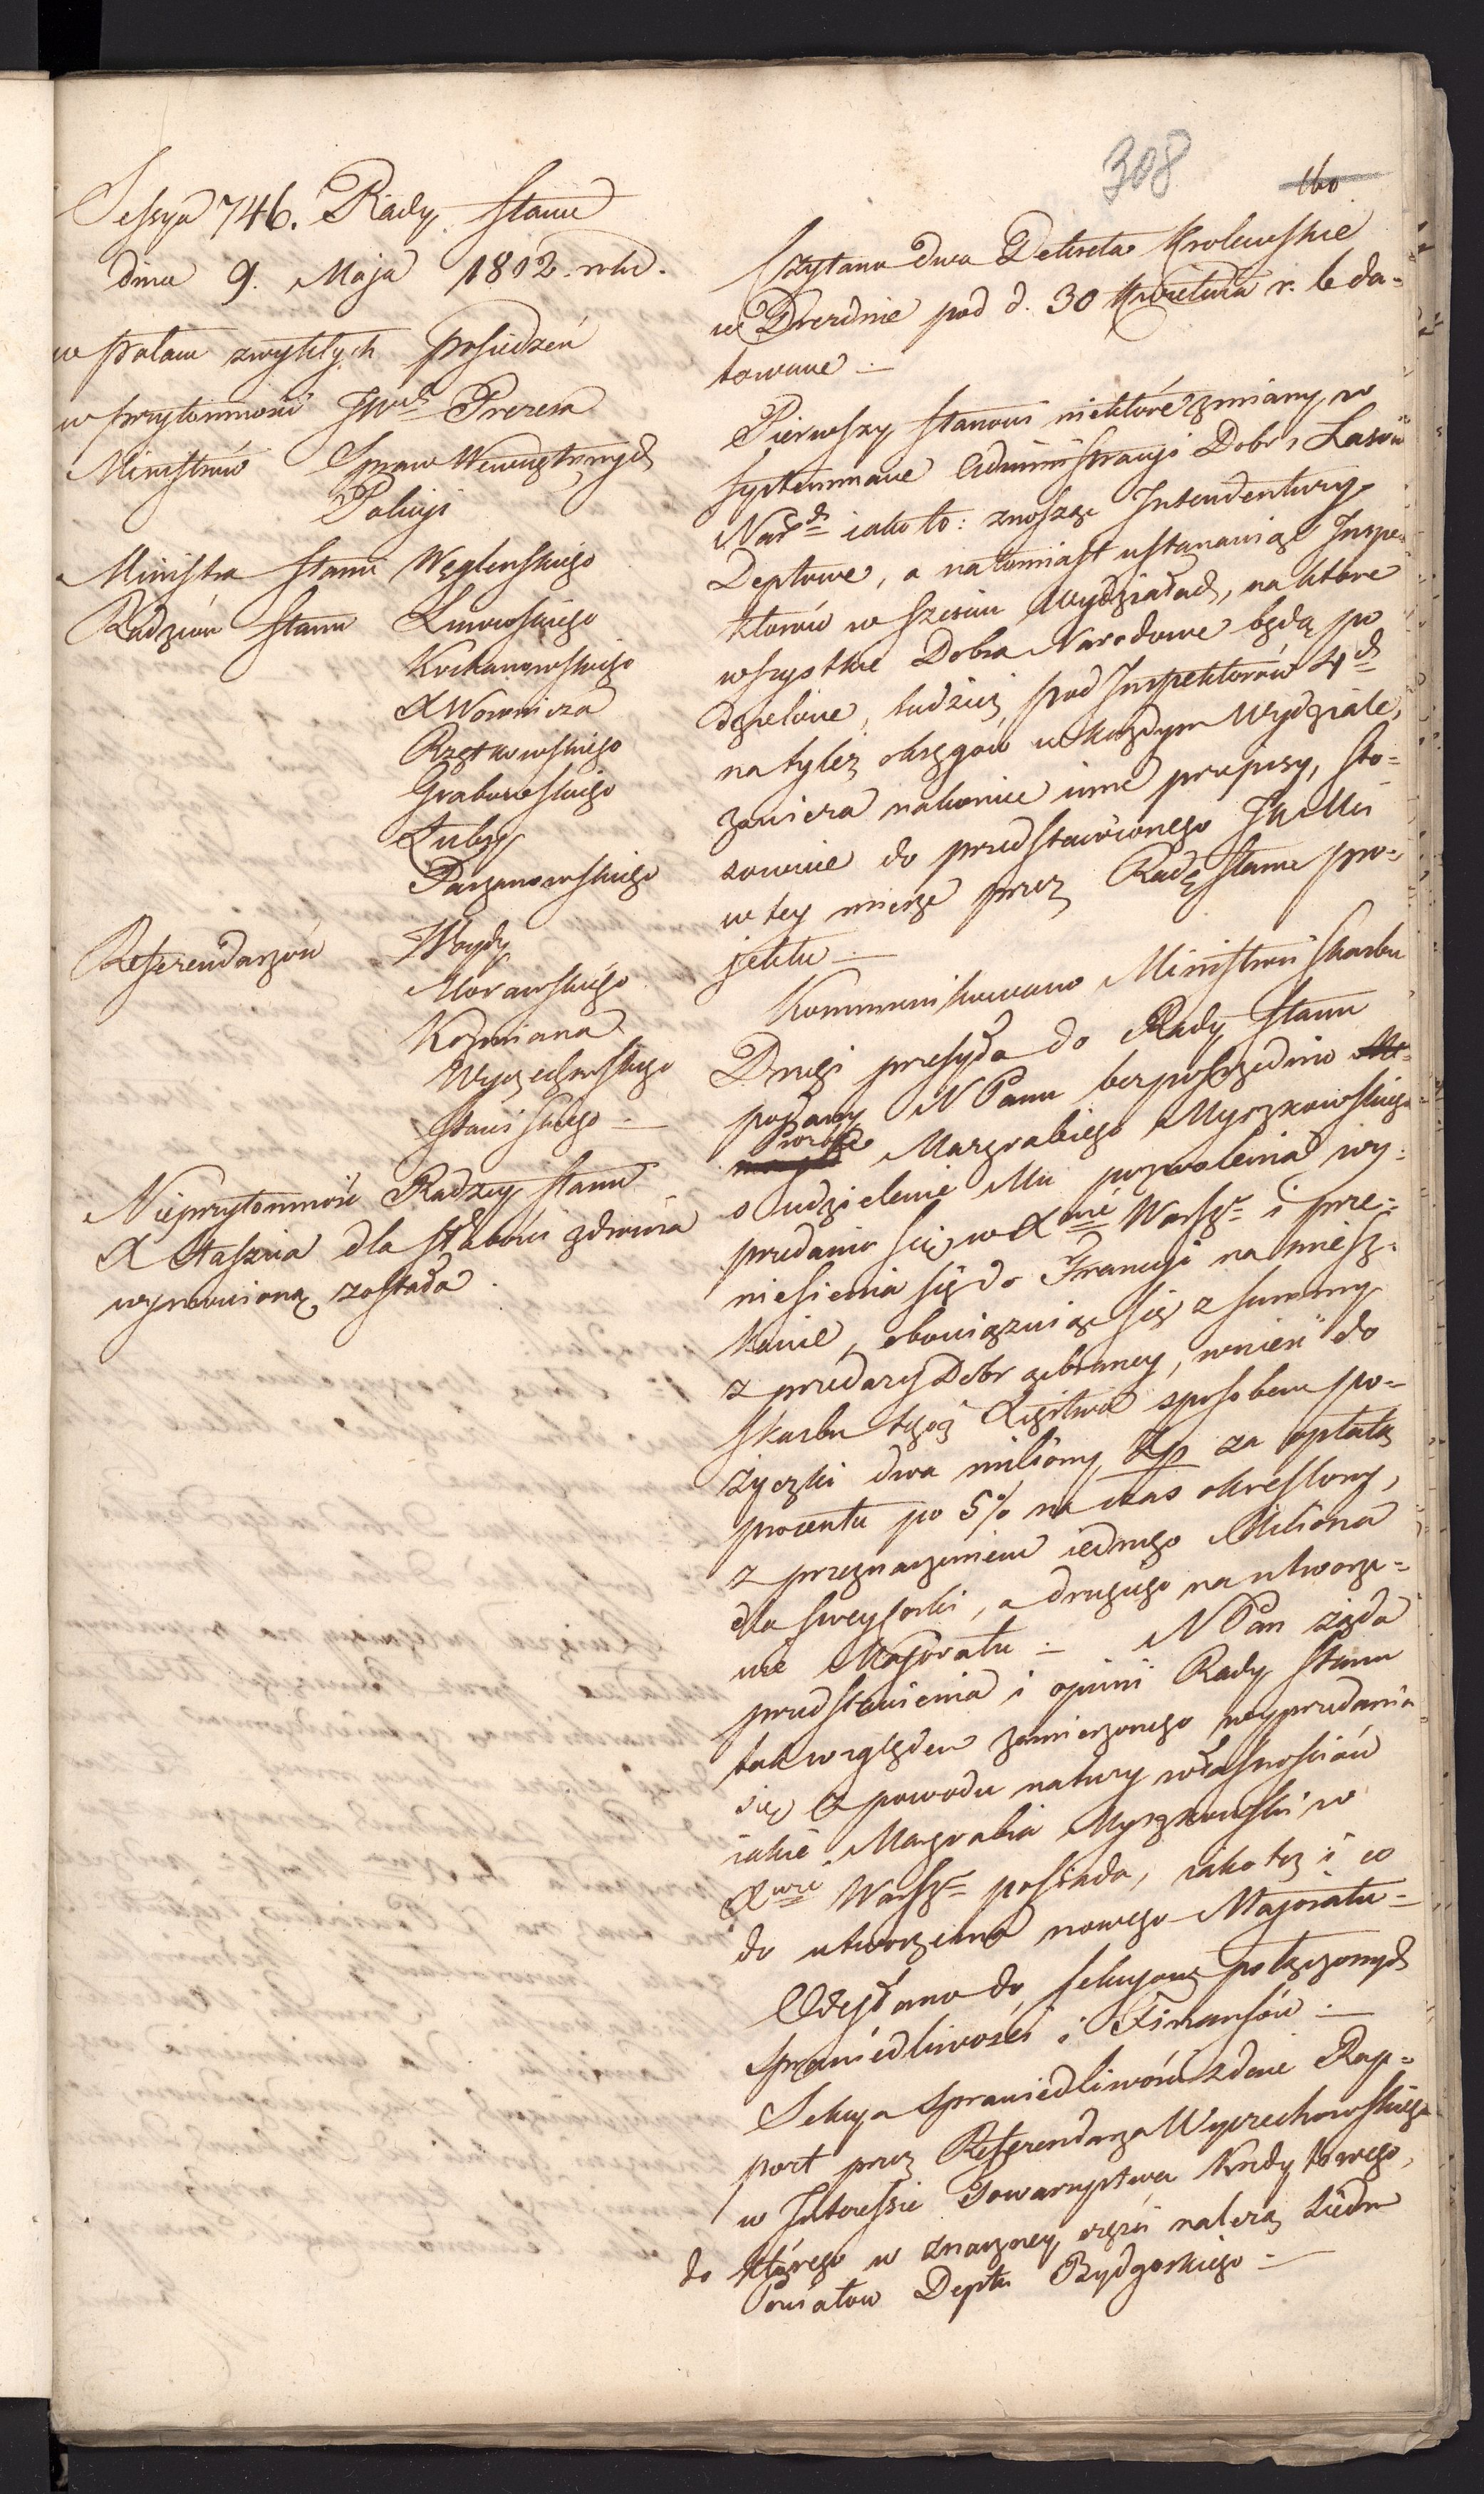 308
160
Sessya 746. Rady Stanu
dnia 9. Maja 1812. roku.
w pałacu zwykłych posiedzeń
w przytomności JWo Prezesa
Ministrów Spraw Wewnętrznych
Policyi
Ministra Stanu Węgleńskiego
Radzców Stanu Linowskiego
Kochanowskiego
X Woronicza
Rzętkowskiego
Grabowskiego
Łuby
Parzanowskiego
Referendarzów Woydy
Morawskiego
Koźmiana
Wyczechowskiego
Staniskiego
Nieprzytomność Radzcy Stanu
X Staszica dla słabości zdrowia
wymowioną została.
Czytano dwa Dekreta Krolewskie
w Dreźnie pod d. 30 Kwietnia r. b. da-
towane
Pierwszy stanowi niektóre zmiany w
systemmacie Administracyi Dobr i Lasów
Nar.ch iako to: znosząc Intendentury
Deptowe, a natomiast ustanawiąc Inspe-
ktorów w sześciu wydziałach, na które
wszystkie Dobra Narodowe będą po
dzielone, tudzież pod Inspektorów 4ch
na tyleż okręgów w każdym wydziale,
zawiera nakoniec inne przepisy, sto-
sownie do przedstawionego JKMci
w tey mierze przez Radę Stanu pro-
jektu
Kommunikowano Ministrowi Skarbu
Drugi przesyła do Rady Stanu
podaną N Panu bezpośrednio
Prozbę Margrabiego Myszkowskiego
o udzielenie Mu pozwolenia wy-
przedania się w Xwie Warszo i prze-
niesienia się do Francyi na miesz-
kanie, obowiązuiąc się z summy
z przedaży Dobr zebraney, wnieść do
Skarbu tegoż Xięstwa sposobem po-
życzki dwa miliony Złp za opłatą
procentu po 5% na czas określony,
z przeznaczeniem iednego Miliona
dla swey corki, a drugiego na utworze-
nie Majoratu N Pan żąda
przedstawienia i opinii Rady Stanu
tak względem zamierzonego wyprzedania
się z powodu natury własnościów
iakie Margrabia Myszkowski w
Xwie Warszo posiada, iako też i co
do utworzenia nowego Majoratu
Odesłano do Sekcyów połączonych
Sprawiedliwości i Finansów
Sekcya Sprawiedliwości zdaie Rap-
port przez Referendarza Wyczechowskiego
w Interessie Towarzystwa Kredytowego,
do którego w znaczney części należą siedm
Powiatów Deptu Bydgoskiego